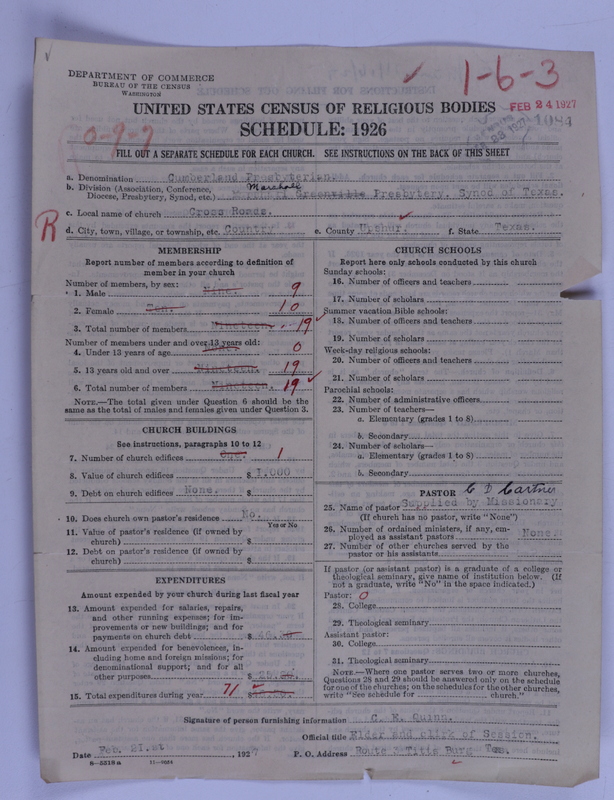 DEPARTMENT OF COMMERCE
BUREAU OF THE CENSUS
WASHINGTON
1-6-3
UNITED STATES CENSUS OF RELIGIOUS BODIES
FEB 24 1927
SCHEDULE: 1926
1084
0-9-9
FILL OUT A SEPARATE SCHEDULE FOR EACH CHURCH. SEE INSTRUCTIONS ON THE BACK OF THIS SHEET
a. Denomination Cumberland Presbyterian
b. Division (Association, Conference, Diocese, Presbytery, Synod, etc.) Marshall Greenville Presbytery. Synod of Texas.
c. Local name of church Cross Roads.
R
d. City, town, village, or township, etc. Country e. County Upshur. f. State Texas.
MEMBERSHIP
Report number of members according to definition of
member in your church
Number of members, by sex:
1. Male Nine. 9
2. Female Ten. 10
3. Total number of members Nineteen. 19
Number of members under and over 13 years old:
4. Under 13 years of age 0
5. 13 years old and over Nineteen. 19
6. Total number of members Nineteen. 19
NOTE.—The total given under Question 6 should be the
same as the total of males and females given under Question 3.
CHURCH BUILDINGS
See instructions, paragraphs 10 to 12
7. Number of church edifices One. 1
8. Value of church edifices $ 1,000
9. Debt on church edifices None. $
10. Does church own pastor's residence No.
Yes or No
11. Value of pastor's residence (if owned by
church) $
12. Debt on pastor's residence (if owned by
church) $
EXPENDITURES
Amount expended by your church during last fiscal year
13. Amount expended for salaries, repairs,
and other running expenses; for im-
provements or new buildings; and for
payments on church debt $
14. Amount expended for benevolences, in-
cluding home and foreign missions; for
denominational support; and for all
other purposes $
15. Total expenditures during year 71 $
CHURCH SCHOOLS
Report here only schools conducted by this church
Sunday schools:
16. Number of officers and teachers
17. Number of scholars
Summer vacation Bible schools:
18. Number of officers and teachers
19. Number of scholars
Week-day religious schools:
20. Number of officers and teachers
21. Number of scholars
Parochial schools:
22. Number of administrative officers
23. Number of teachers—
a. Elementary (grades 1 to 8)
b. Secondary
24. Number of scholars—
a. Elementary (grades 1 to 8)
b. Secondary
PASTOR C D Cartner
25. Name of pastor Supplied by Missionary
(If church has no pastor, write "None")
26. Number of ordained ministers, if any, em-
ployed as assistant pastors None.
27. Number of other churches served by the
pastor or his assistants
If pastor (or assistant pastor) is a graduate of a college or
theological seminary, give name of institution below. (If
not a graduate, write "No" in the space indicated.)
Pastor: 0
28. College
29. Theological seminary
Assistant pastor:
30. College
31. Theological seminary
NOTE.—Where one pastor serves two or more churches,
Questions 28 and 29 should be answered only on the schedule
for one of the churches; on the schedules for the other churches,
write "See schedule for church."
Signature of person furnishing information C. E. Quinn.
Official title Elder and clirk of Session.
Date Feb. 21.st, 1927 P. O. Address Route Titts Burg Tex.
8-5318a 11-9684